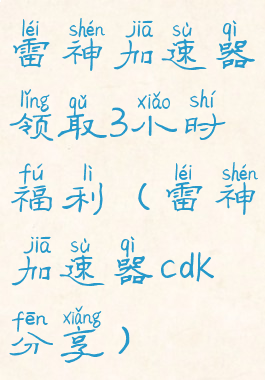 léi shén jiā sù qì
雷神加速器
lǐng qǔ xiǎo shí
领取3小时
fú lì léi shén
福利（雷神
jiā sù qì
加速器cdk
fēn xiǎng
分享）